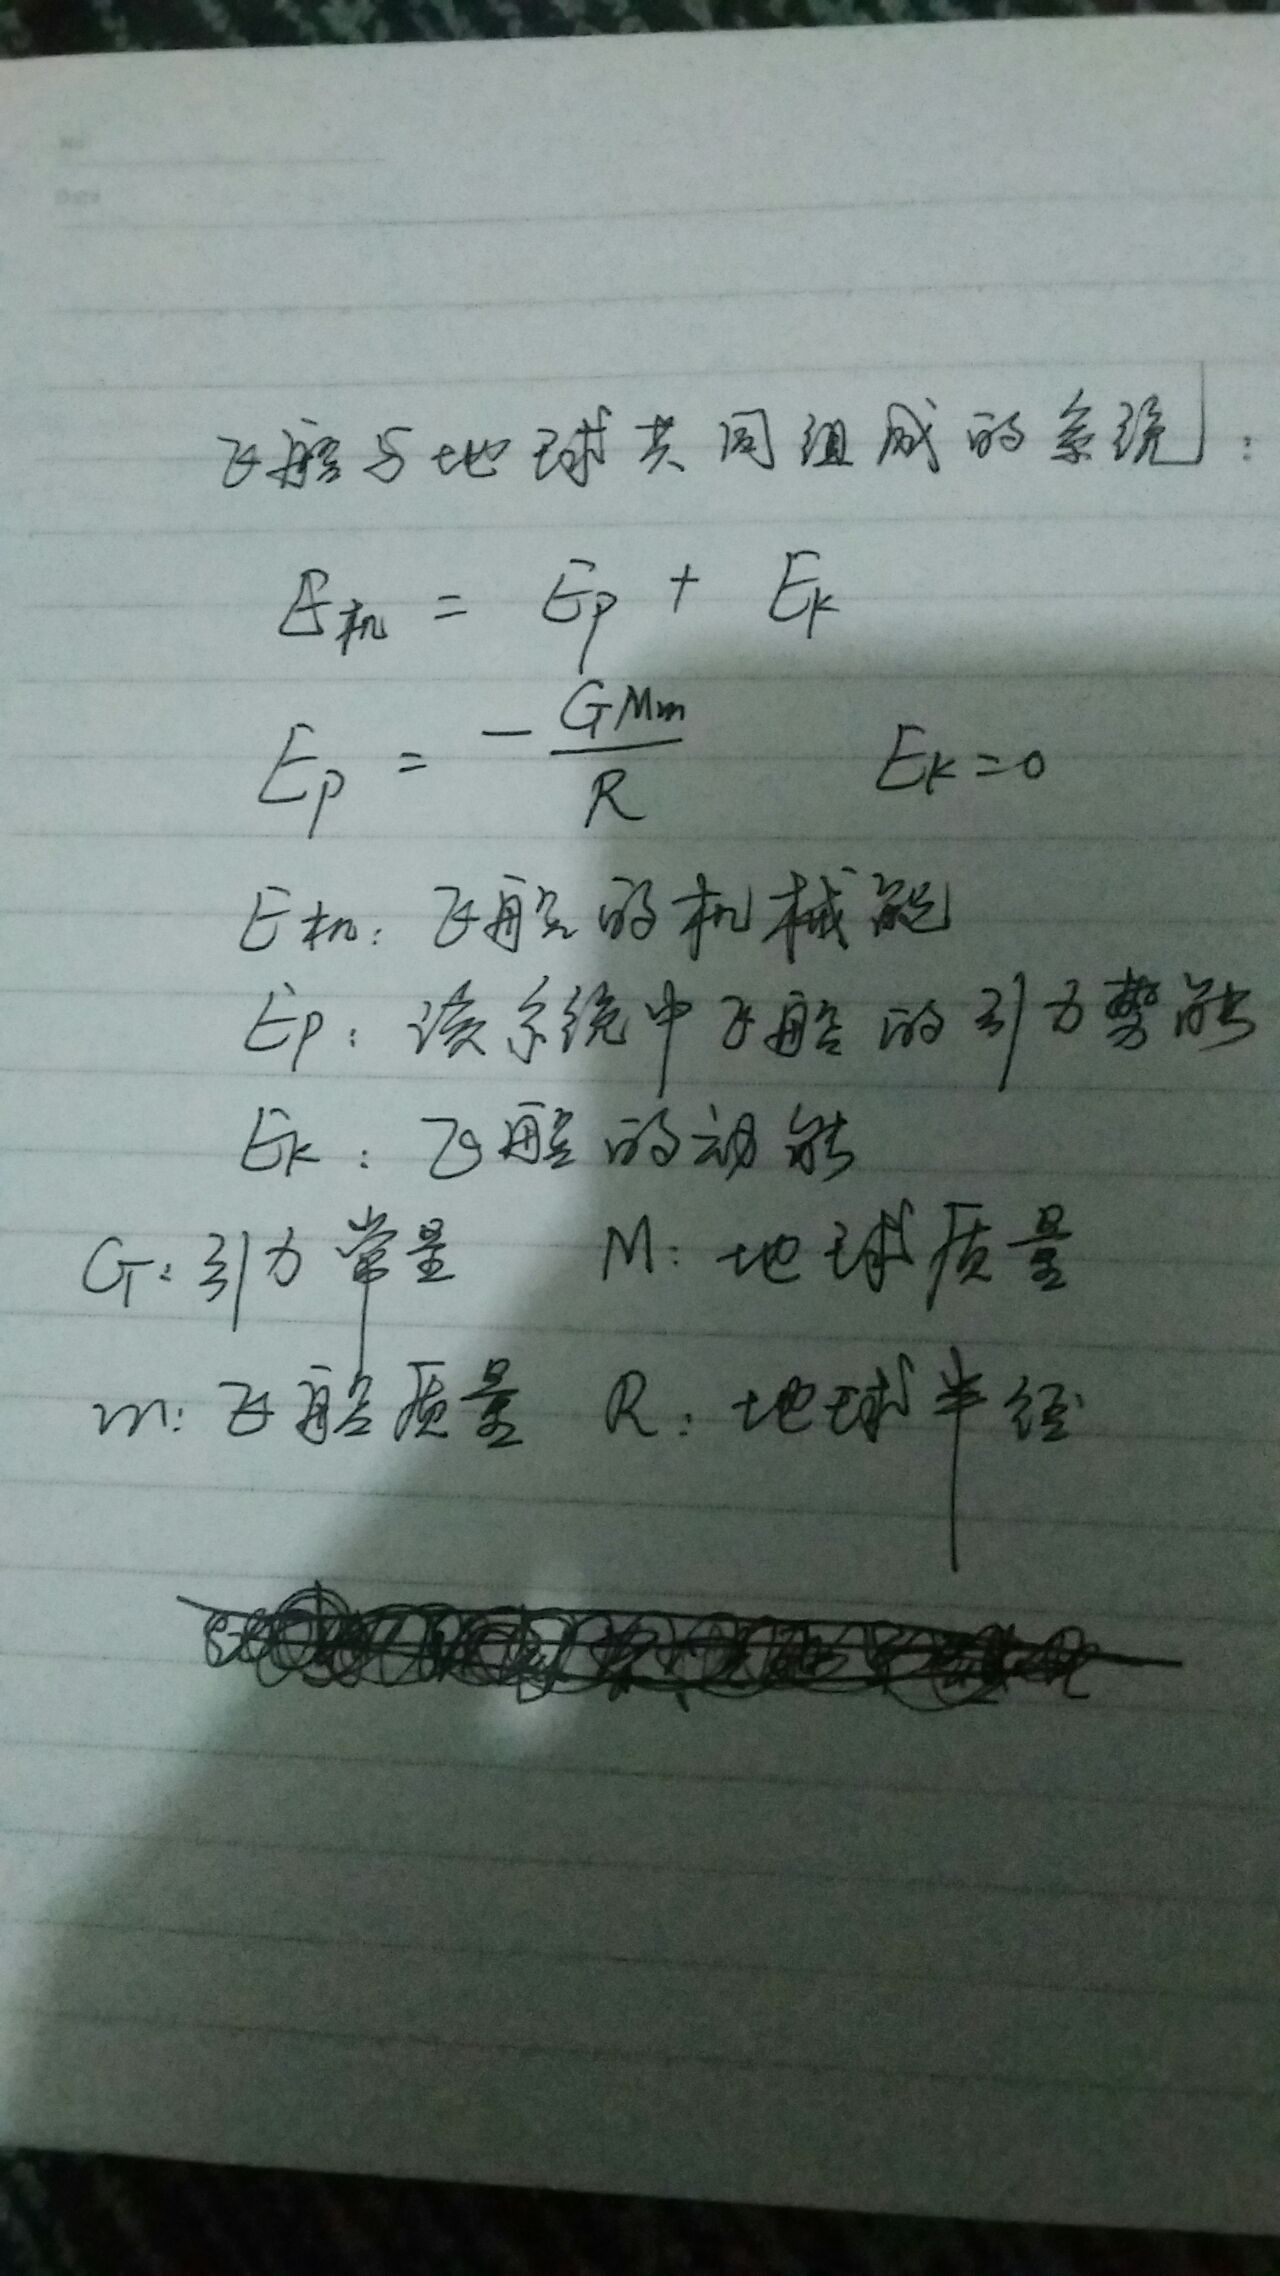 飞船与地球共同组成的系统:
E机 = Ep + Ek
Ep = -GMm/R Ek=0
E机: 飞船的机械能
Ep: 该系统中飞船的引力势能
Ek: 飞船的动能
G: 引力常量 M: 地球质量
m: 飞船质量 R: 地球半径